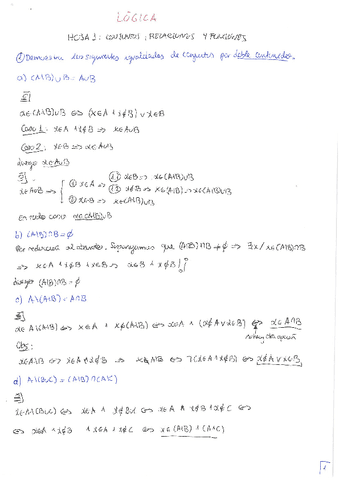 LÓGICA
HOJA 1: CONJUNTOS, RELACIONES Y FUNCIONES
① Demuestra las siguientes igualdades de conjuntos por doble contenido.
a) (A\B)∪B = A∪B
⊆
x∈(A\B)∪B ⇔ (x∈A ∧ x∉B) ∨ x∈B
Caso 1: x∈A ∧ x∉B ⇒ x∈A∪B
Caso 2: x∈B ⇒ x∈A∪B
luego x∈A∪B
⊇
x∈A∪B ⇒ ① x∈A ⇒ 1.1 x∈B ⇒ x∈(A\B)∪B
1.2 x∉B ⇒ x∈(A\B) ⇒ x∈(A\B)∪B
② x∈B ⇒ x∈(A\B)∪B
En todo caso x∈(A\B)∪B
b) (A\B)∩B = ∅
Por reducción al absurdo. Supongamos que (A\B)∩B ≠ ∅ ⇒ ∃x / x∈(A\B)∩B
⇒ x∈A ∧ x∉B ∧ x∈B ⇒ x∈B ∧ x∉B
luego (A\B)∩B = ∅
c) A\(A\B) = A∩B
⊆
x∈A\(A\B) ⇔ x∈A ∧ x∉(A\B) ⇔ x∈A ∧ (x∉A ∨ x∈B) ⇔ x∈A∩B
Obs:
x∈A\B ⇔ x∈A ∧ x∉B ⇒ x∉A\B ⇔ ¬(x∈A ∧ x∉B) ⇔ x∉A ∨ x∈B
d) A\(B∪C) = (A\B)∩(A\C)
x∈A\(B∪C) ⇔ x∈A ∧ x∉B∪C ⇔ x∈A ∧ x∉B ∧ x∉C ⇔
⇔ x∈A ∧ x∉B ∧ x∈A ∧ x∉C ⇔ x∈(A\B) ∩ (A\C)
1